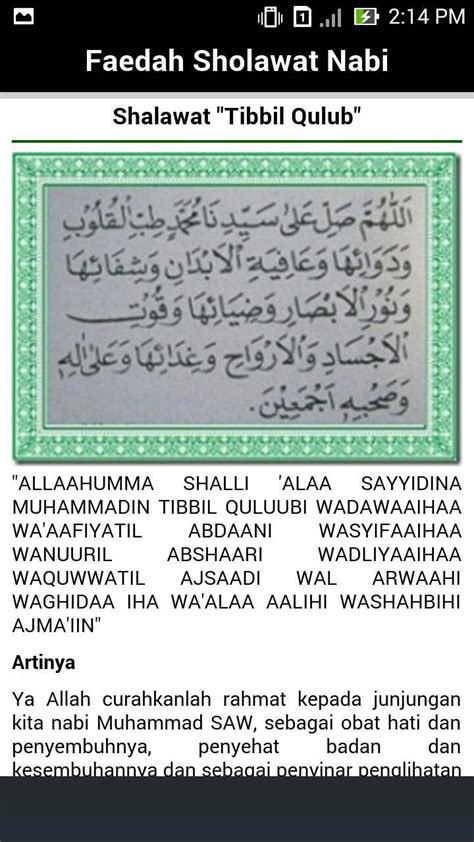 2:14 PM
Faedah Sholawat Nabi
Shalawat "Tibbil Qulub"
اَللّٰهُمَّ صَلِّ عَلٰى سَيِّدِنَا مُحَمَّدٍ طِبِّ الْقُلُوْبِ
وَدَوَائِهَا وَعَافِيَةِ الْاَبْدَانِ وَشِفَائِهَا
وَنُوْرِ الْاَبْصَارِ وَضِيَائِهَا وَقُوْتِ
الْاَجْسَادِ وَالْاَرْوَاحِ وَغِذَائِهَا وَعَلٰى اٰلِهِ
وَصَحْبِهِ اَجْمَعِيْنَ.
"ALLAAHUMMA SHALLI 'ALAA SAYYIDINA
MUHAMMADIN TIBBIL QULUUBI WADAWAAIHAA
WA'AAFIYATIL ABDAANI WASYIFAAIHAA
WANUURIL ABSHAARI WADLIYAAIHAA
WAQUWWATIL AJSAADI WAL ARWAAHI
WAGHIDAA IHA WA'ALAA AALIHI WASHAHBIHI
AJMA'IIN"
Artinya
Ya Allah curahkanlah rahmat kepada junjungan
kita nabi Muhammad SAW, sebagai obat hati dan
penyembuhnya, penyehat badan dan
kesembuhannya dan sebagai penyinar penglihatan